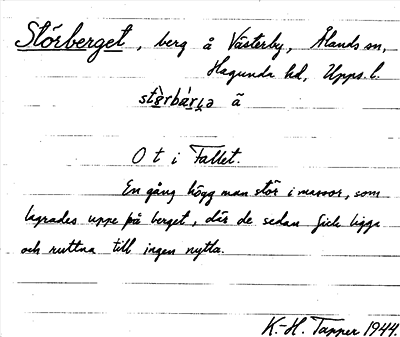 Störberget, berg å Västerby, Ålands sn,
Hagunda hd, Upps. l.
O t i Fallet.
En gång högg man stör i massor, som
lagrades uppe på berget, där de sedan fick ligga
och ruttna till ingen nytta.
K.-H. Tapper 1944.